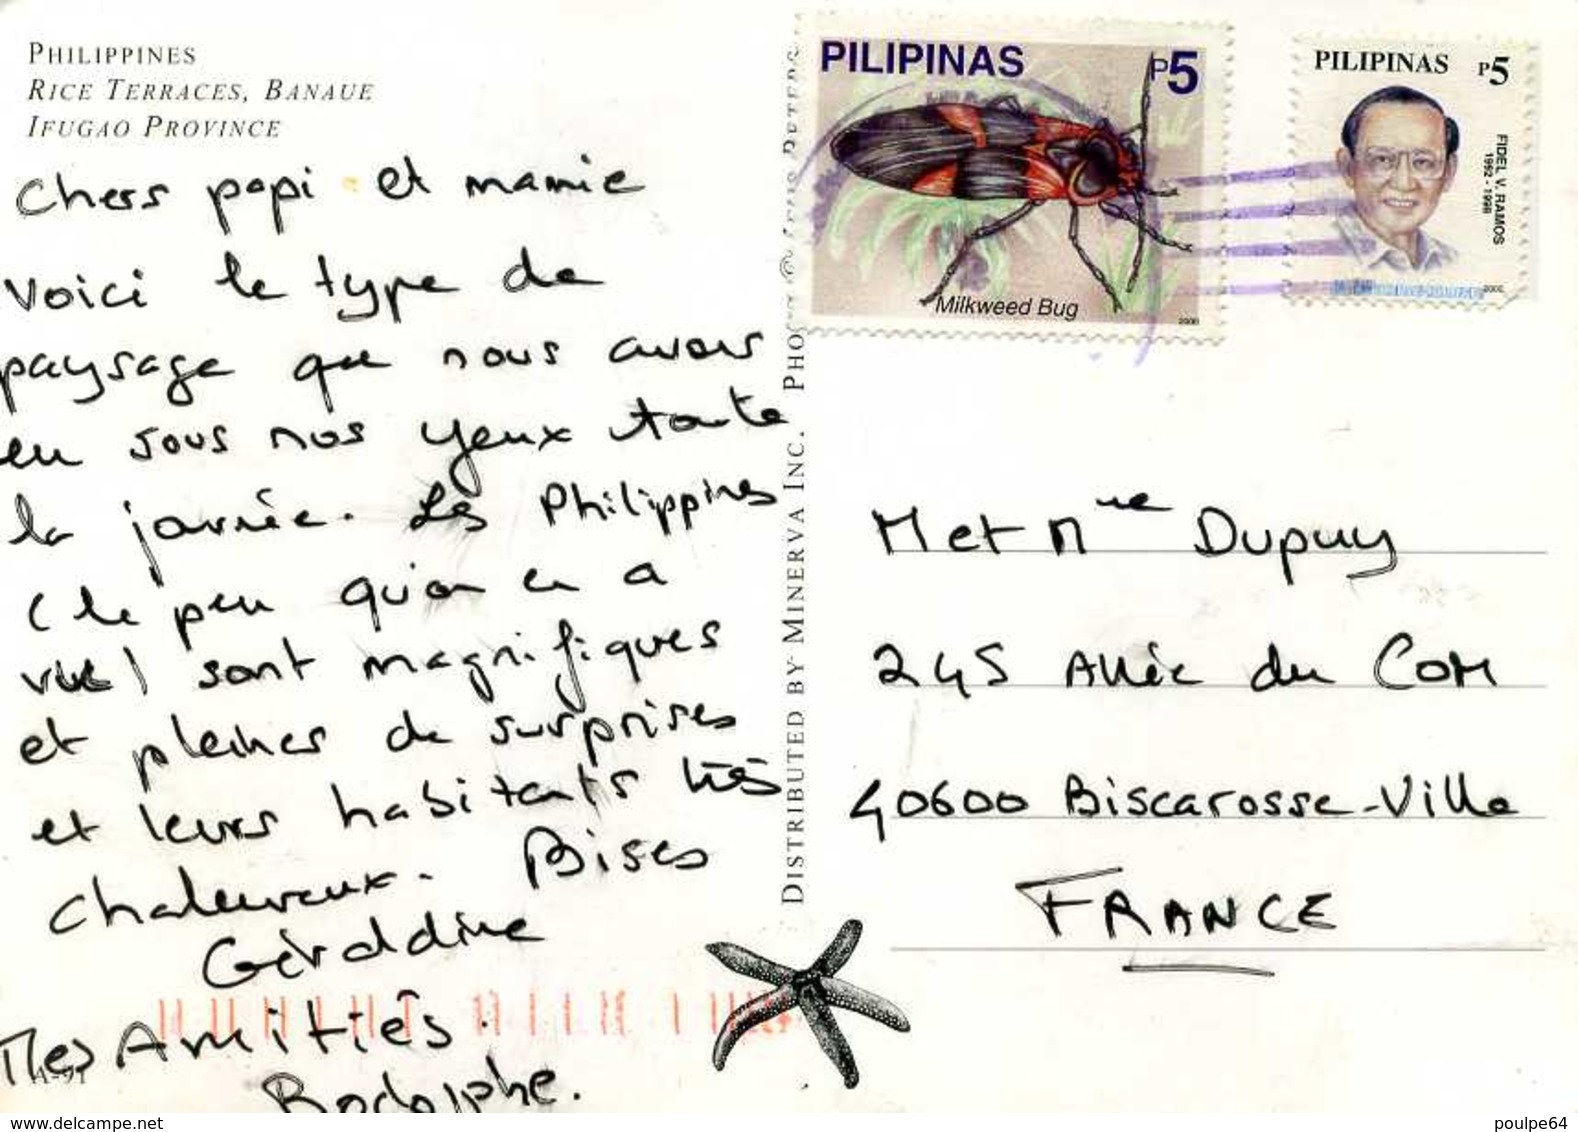 PHILIPPINES
RICE TERRACES, BANAUE
IFUGAO PROVINCE
Chers papi et mamie
Voici le type de
paysage que nous avons
eu sous nos yeux toute
la journée. Les Philippines
(le peu qu'on en a
vue) sont magnifiques
et pleines de surprises
et leurs habitants très
chaleureux. Bises
Géraldine
Mes Amitiés.
Rodolphe.
A-91
DISTRIBUTED BY MINERVA INC. PHOTO ©
PILIPINAS P5
Milkweed Bug
2000
PILIPINAS P5
FIDEL V. RAMOS
1992 - 1998
2000
M et Mme Dupuy
245 Allée du COM
40600 Biscarosse-Ville
FRANCE
www.delcampe.net
poulpe64